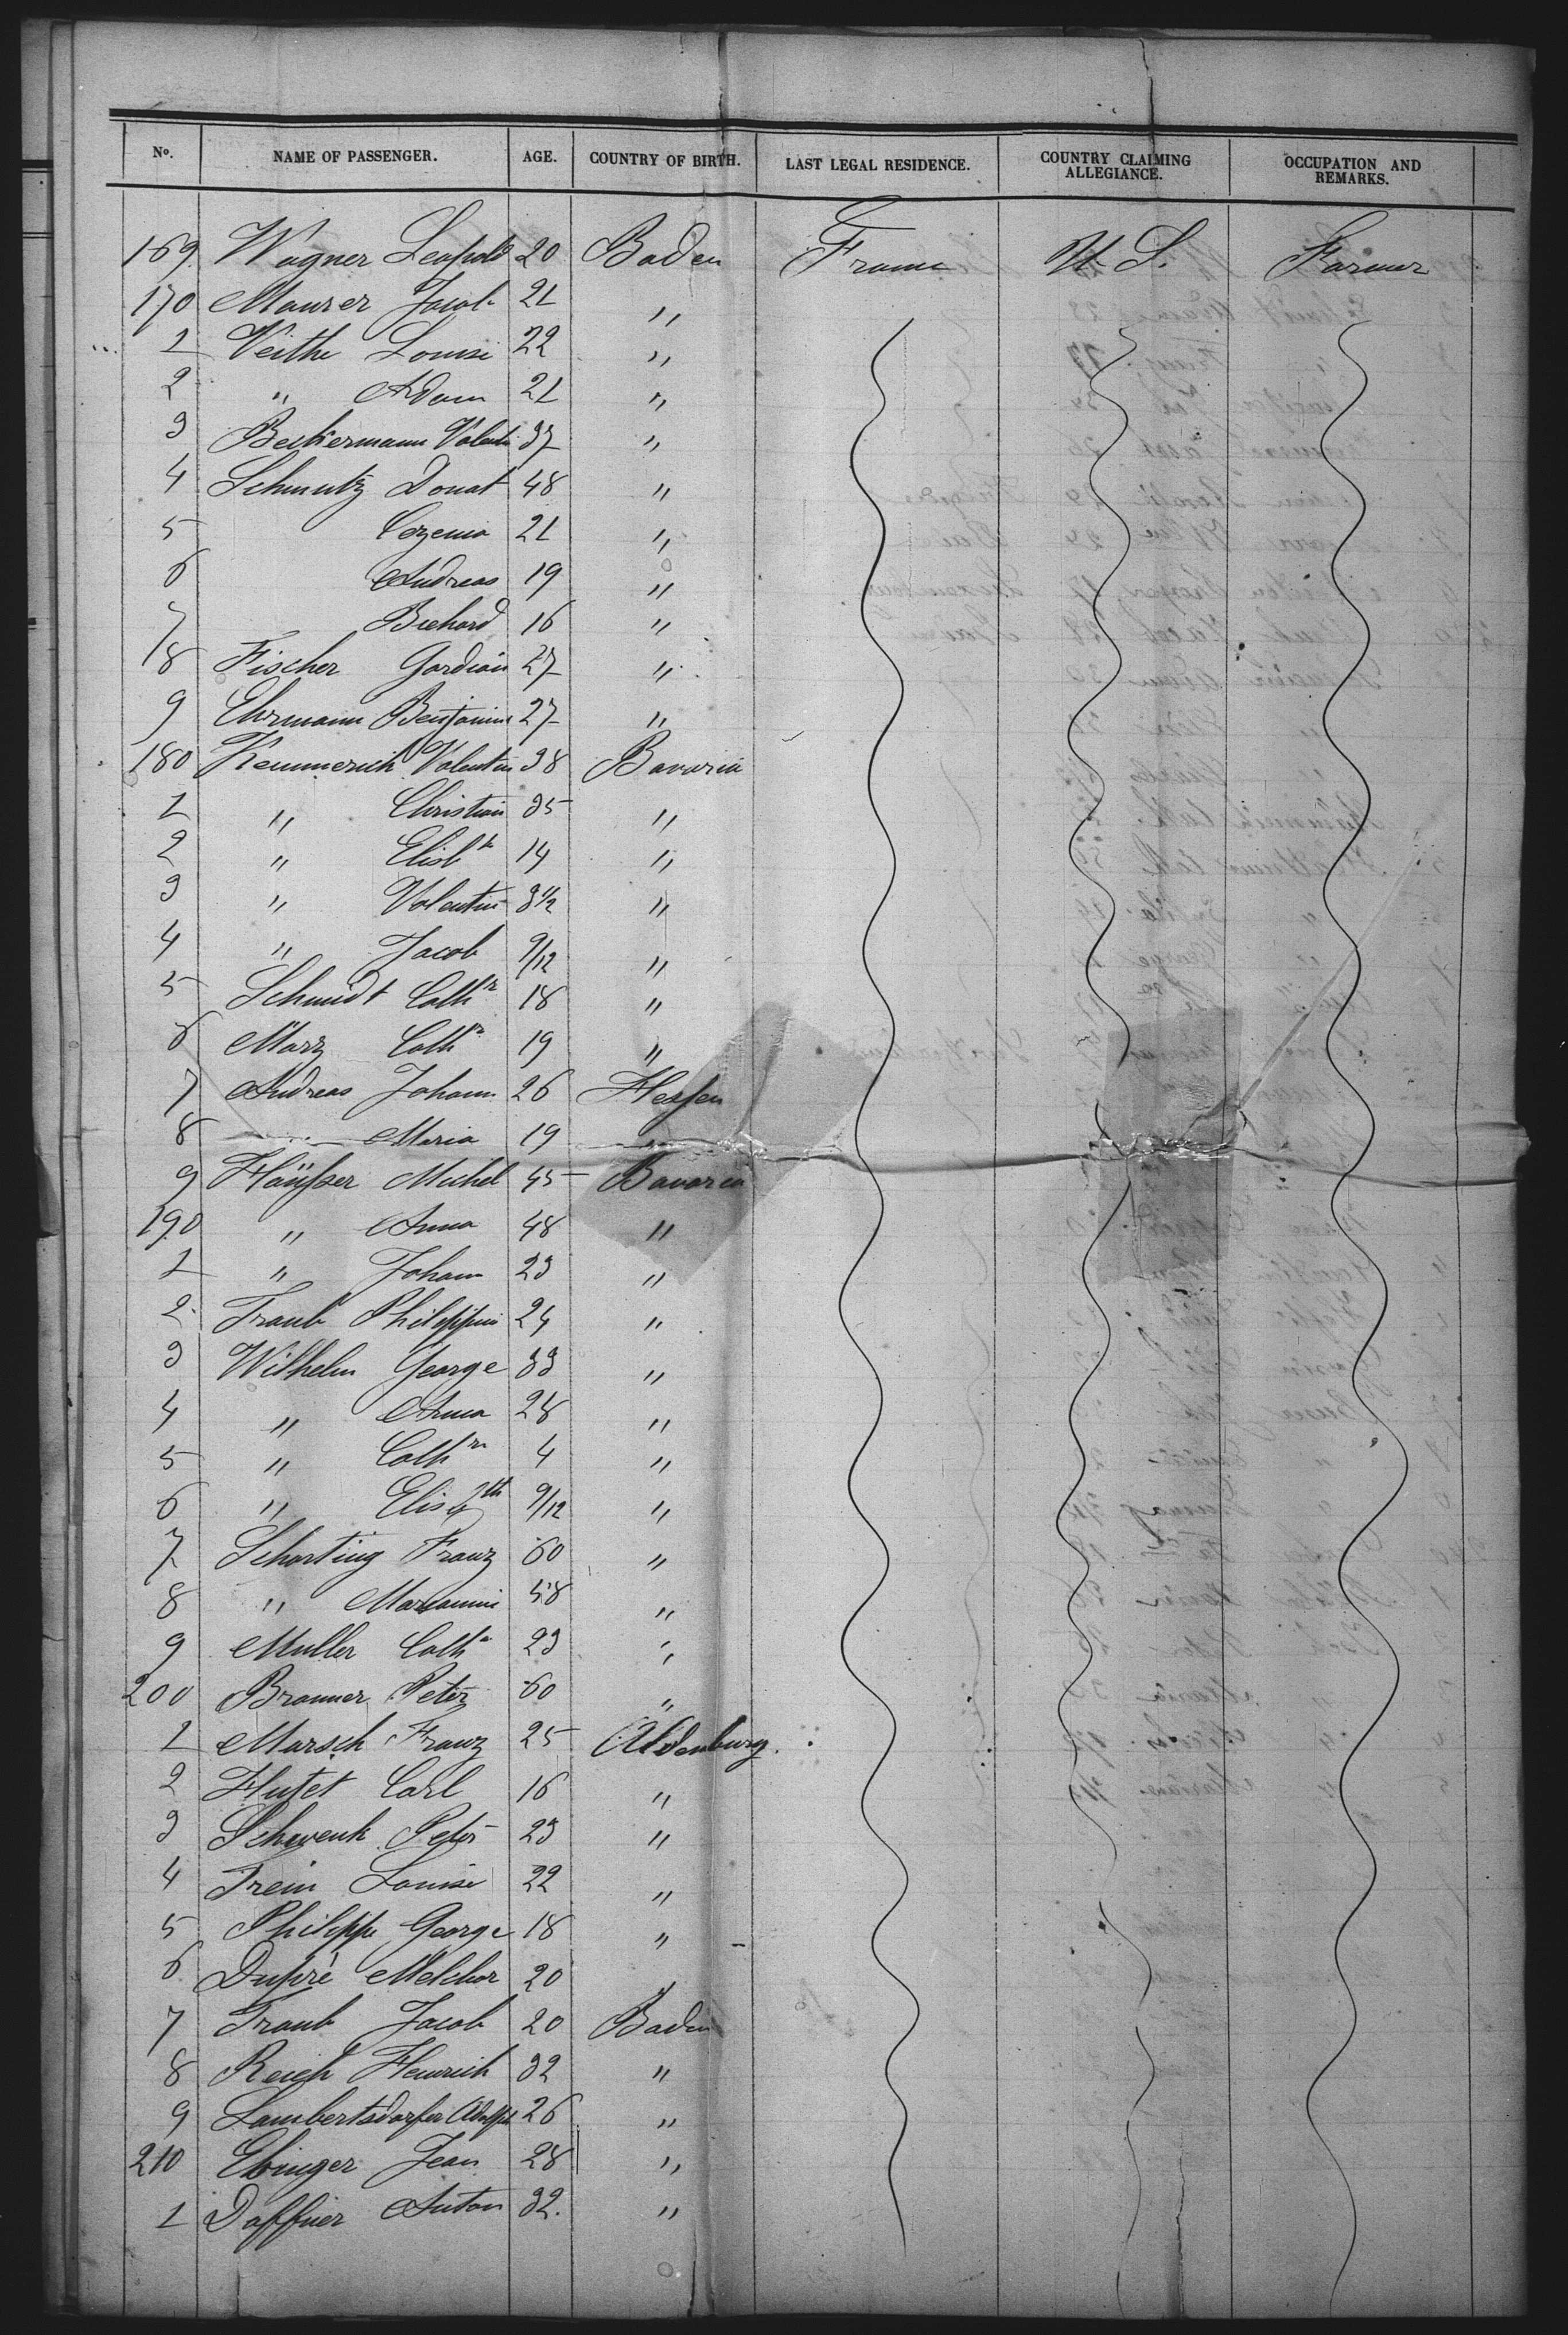 No. NAME OF PASSENGER. AGE. COUNTRY OF BIRTH. LAST LEGAL RESIDENCE. COUNTRY CLAIMING ALLEGIANCE. OCCUPATION AND REMARKS.
169. Wagner Leopold 20 Baden France U. S. Farmer
170 Maurer Jacob 21 "
1 Veithe Louise 22 "
2 " Adam 21 "
3 Beckermann Valentin 37 "
4 Schmutz Donat 48 "
5 21 "
6 Andreas 19 "
7 16 "
8 Fischer Gordian 27 "
9 Ehrmann Benjamin 27 "
180 Kemmerich Valentin 38 Bavaria
1 " Christian 35 "
2 " Elisbth 14 "
3 " Valentin 3 1/2 "
4 " Jacob 9/12 "
5 Schmidt Cath 18 "
6 März Cath 19 "
7 Andreas Johann 26 Hessen
8 Maria 19 "
9 Häußer Michel 45 Bavaria
190 " Anna 48 "
1 " Johann 23 "
2. Traub Philippine 24 "
3 Wilhelm George 33 "
4 " Anna 28 "
5 " Cath 4 "
6 " Elisbth 9/12 "
7 Scharting Franz 60 "
8 " 58 "
9 Muller Cath 23 "
200 Branner Peter 60 "
1 Marsch Franz 25 Oldenburg.
2 Hutet Carl 16 "
3 Schwenk Peter 23 "
4 Trein Louise 22 "
5 Philippe George 18 "
6 Dupré Melchor 20 "
7 Traub Jacob 20 Baden
8 Reich Heinrich 32 "
9 Lambertsdorfer Adolph 26 "
210 Ebinger Jean 28 "
1 Daffner Anton 32. "